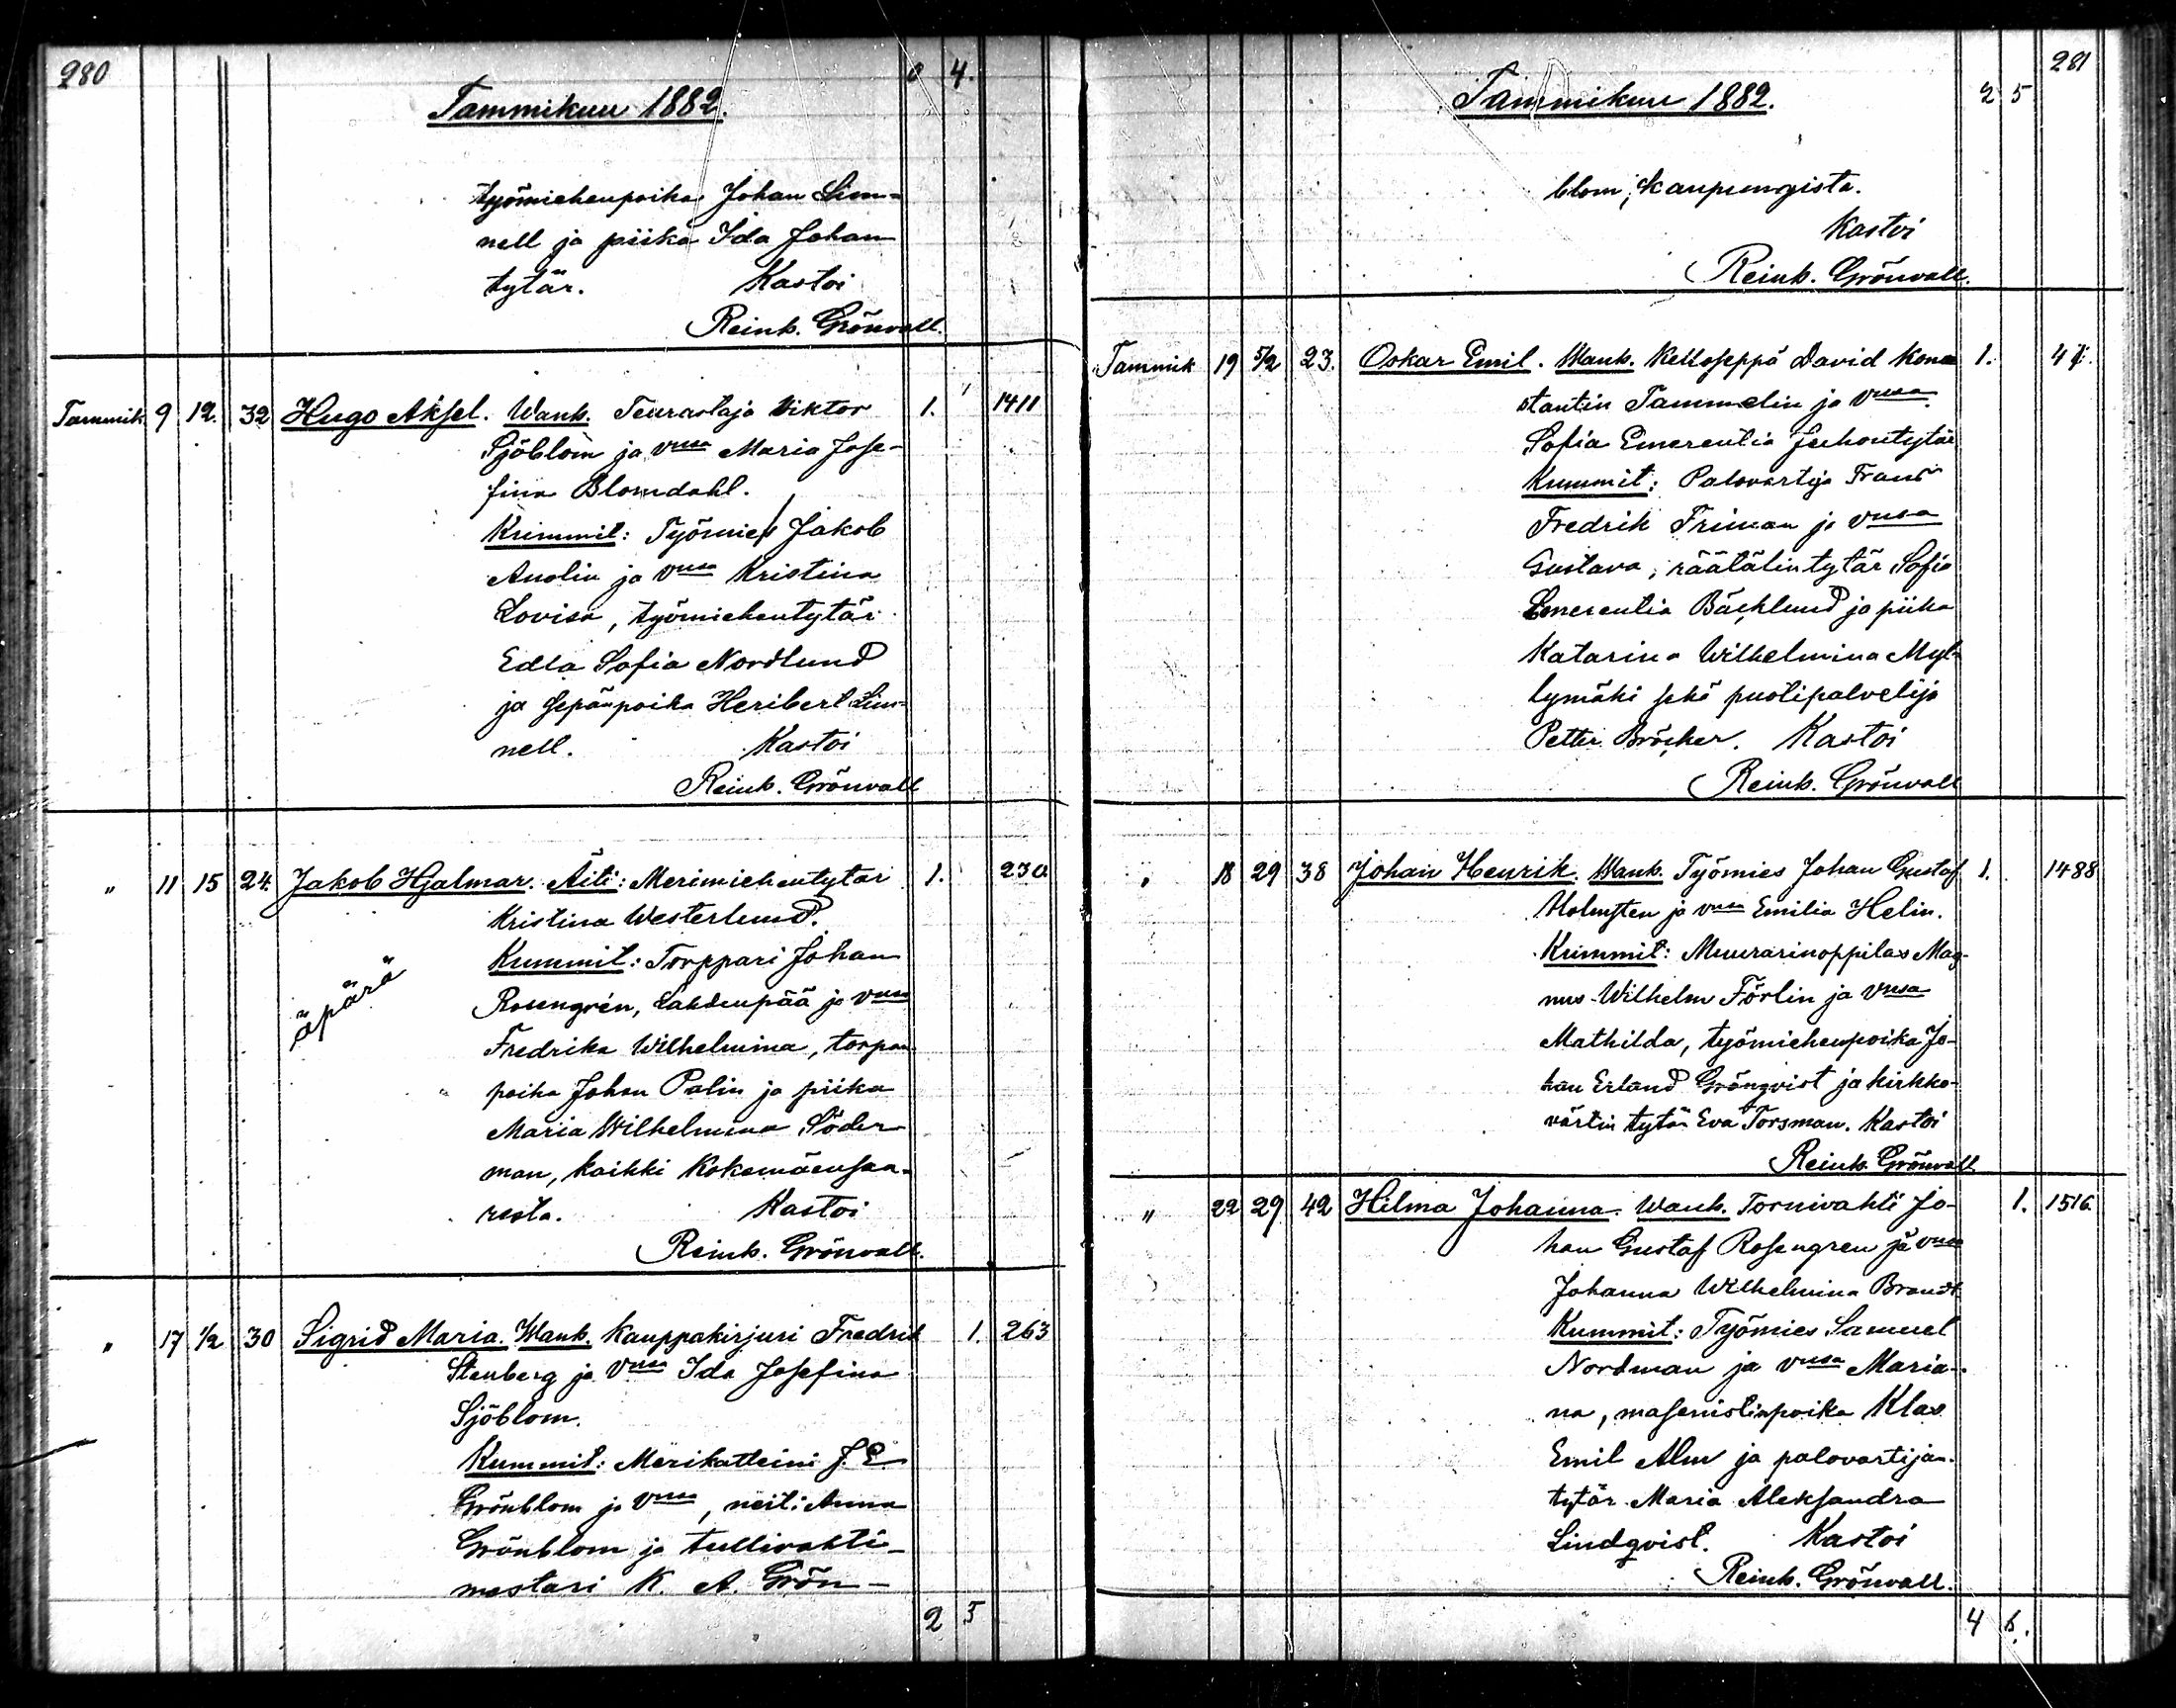 280
0 4.
Tammikuu 1882.
työmiehenpoika Johan Lin-
nell ja piika Ida Johan
tytär. Kastoi
Reinh. Grönvall.
Tammik. 9 12. 32 Hugo Aksel. Wanh. Teurastaja Viktor 1. 1411
Sjöblom ja vmsa Maria Jose-
fina Blomdahl.
Kummit: Työmies Jakob
Anolin ja vmsa Kristina
Lovisa, työmiehentytär
Edla Sofia Nordlund
ja sepänpoika Heribert Lin-
nell. Kastoi
Reinh. Grönvall
" 11 15 24. Jakob Hjalmar. Äiti: Merimiehentytär 1. 230
Kristina Westerlund.
äpärä
Kummit: Torppari Johan
Rosengrén, Lahdenpää ja vmsa
Fredrika Wilhelmina, torpan
poika Johan Palin ja piika
Maria Wilhelmina Söder
man, kaikki Kokemäensaa-
resta. Kastoi
Reinh. Grönvall.
" 17 1/2 30 Sigrid Maria. Wanh. Kauppakirjuri Fredrik 1. 263
Stenberg ja vmsa Ida Josefina
Sjöblom.
Kummit: Merikatteini J. E.
Grönblom ja vmsa, neiti Anna
Grönblom ja tullivahti-
mestari K. A. Grön-
2 5
281
Tammikuu 1882.
2 5
blom, kaupungista.
Kastoi
Reinh. Grönvall.
Tammik 19 5/2 23. Oskar Emil. Wanh. Kelloseppä David Kon 1. 47.
stantin Tammelin ja vmsa
Sofia Emerentia Juhontytär
Kummit: Palovartija Frans
Fredrik Friman ja vmsa
Gustava, räätälintytär Sofia
Emerentia Bäcklund ja piika
Katarina Wilhelmina Myl-
lymäki sekä puotipalvelija
Petter Bröcker. Kastoi
Reinh. Grönvall
" 18 29 38 Johan Henrik. Wanh. Työmies Johan Gustaf 1. 1488
Holmsten ja vmsa Emilia Helin.
Kummit: Muurarinoppilas Mag-
nus Wilhelm Förlin ja vmsa
Mathilda, työmiehenpoika Jo-
han Erland Grönqvist ja kirkko-
värtin tytär Eva Forsman. Kastoi
Reinh. Grönvall
" 22 29 42 Hilma Johanna. Wanh. Tornivahti Jo- 1. 1516.
han Gustaf Rosengren ja vmsa
Johanna Wilhelmina Brandt
Kummit: Työmies Samuel
Nordman ja vmsa Maria-
na, masenistinpoika Klas
Emil Alm ja palovartijan
tytär Maria Aleksandra
Lindqvist. Kastoi
Reinh. Grönvall.
4 6.